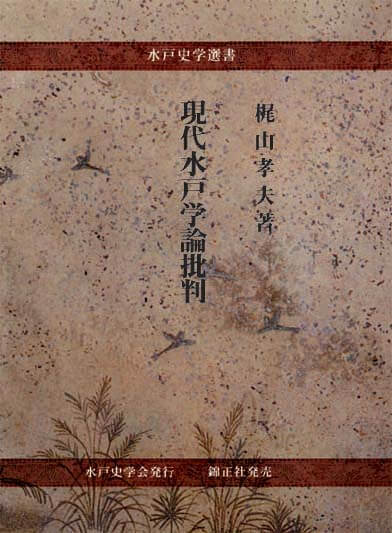 水戸史学選書
梶山孝夫著
現代水戸学論批判
水戸史学会発行 錦正社発売